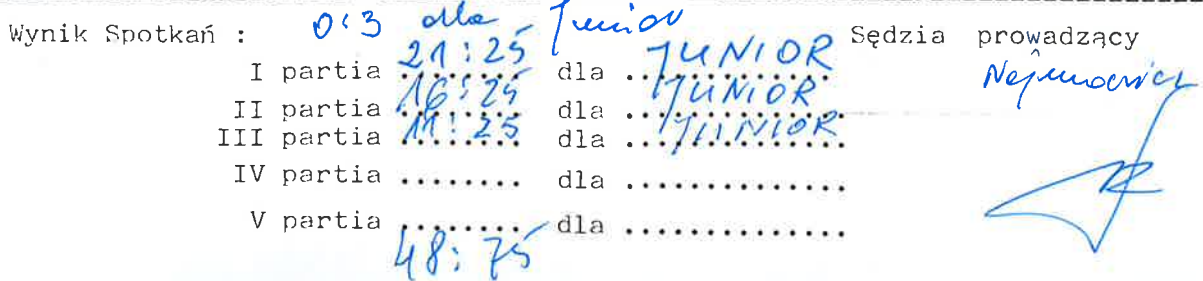 Wynik Spotkań : 0:3 dla Junior Sędzia prowadzący
I partia 21:25 dla JUNIOR
II partia 16:25 dla JUNIOR
III partia 11:25 dla JUNIOR
IV partia ........ dla ...............
V partia ........ dla ...............
48:75